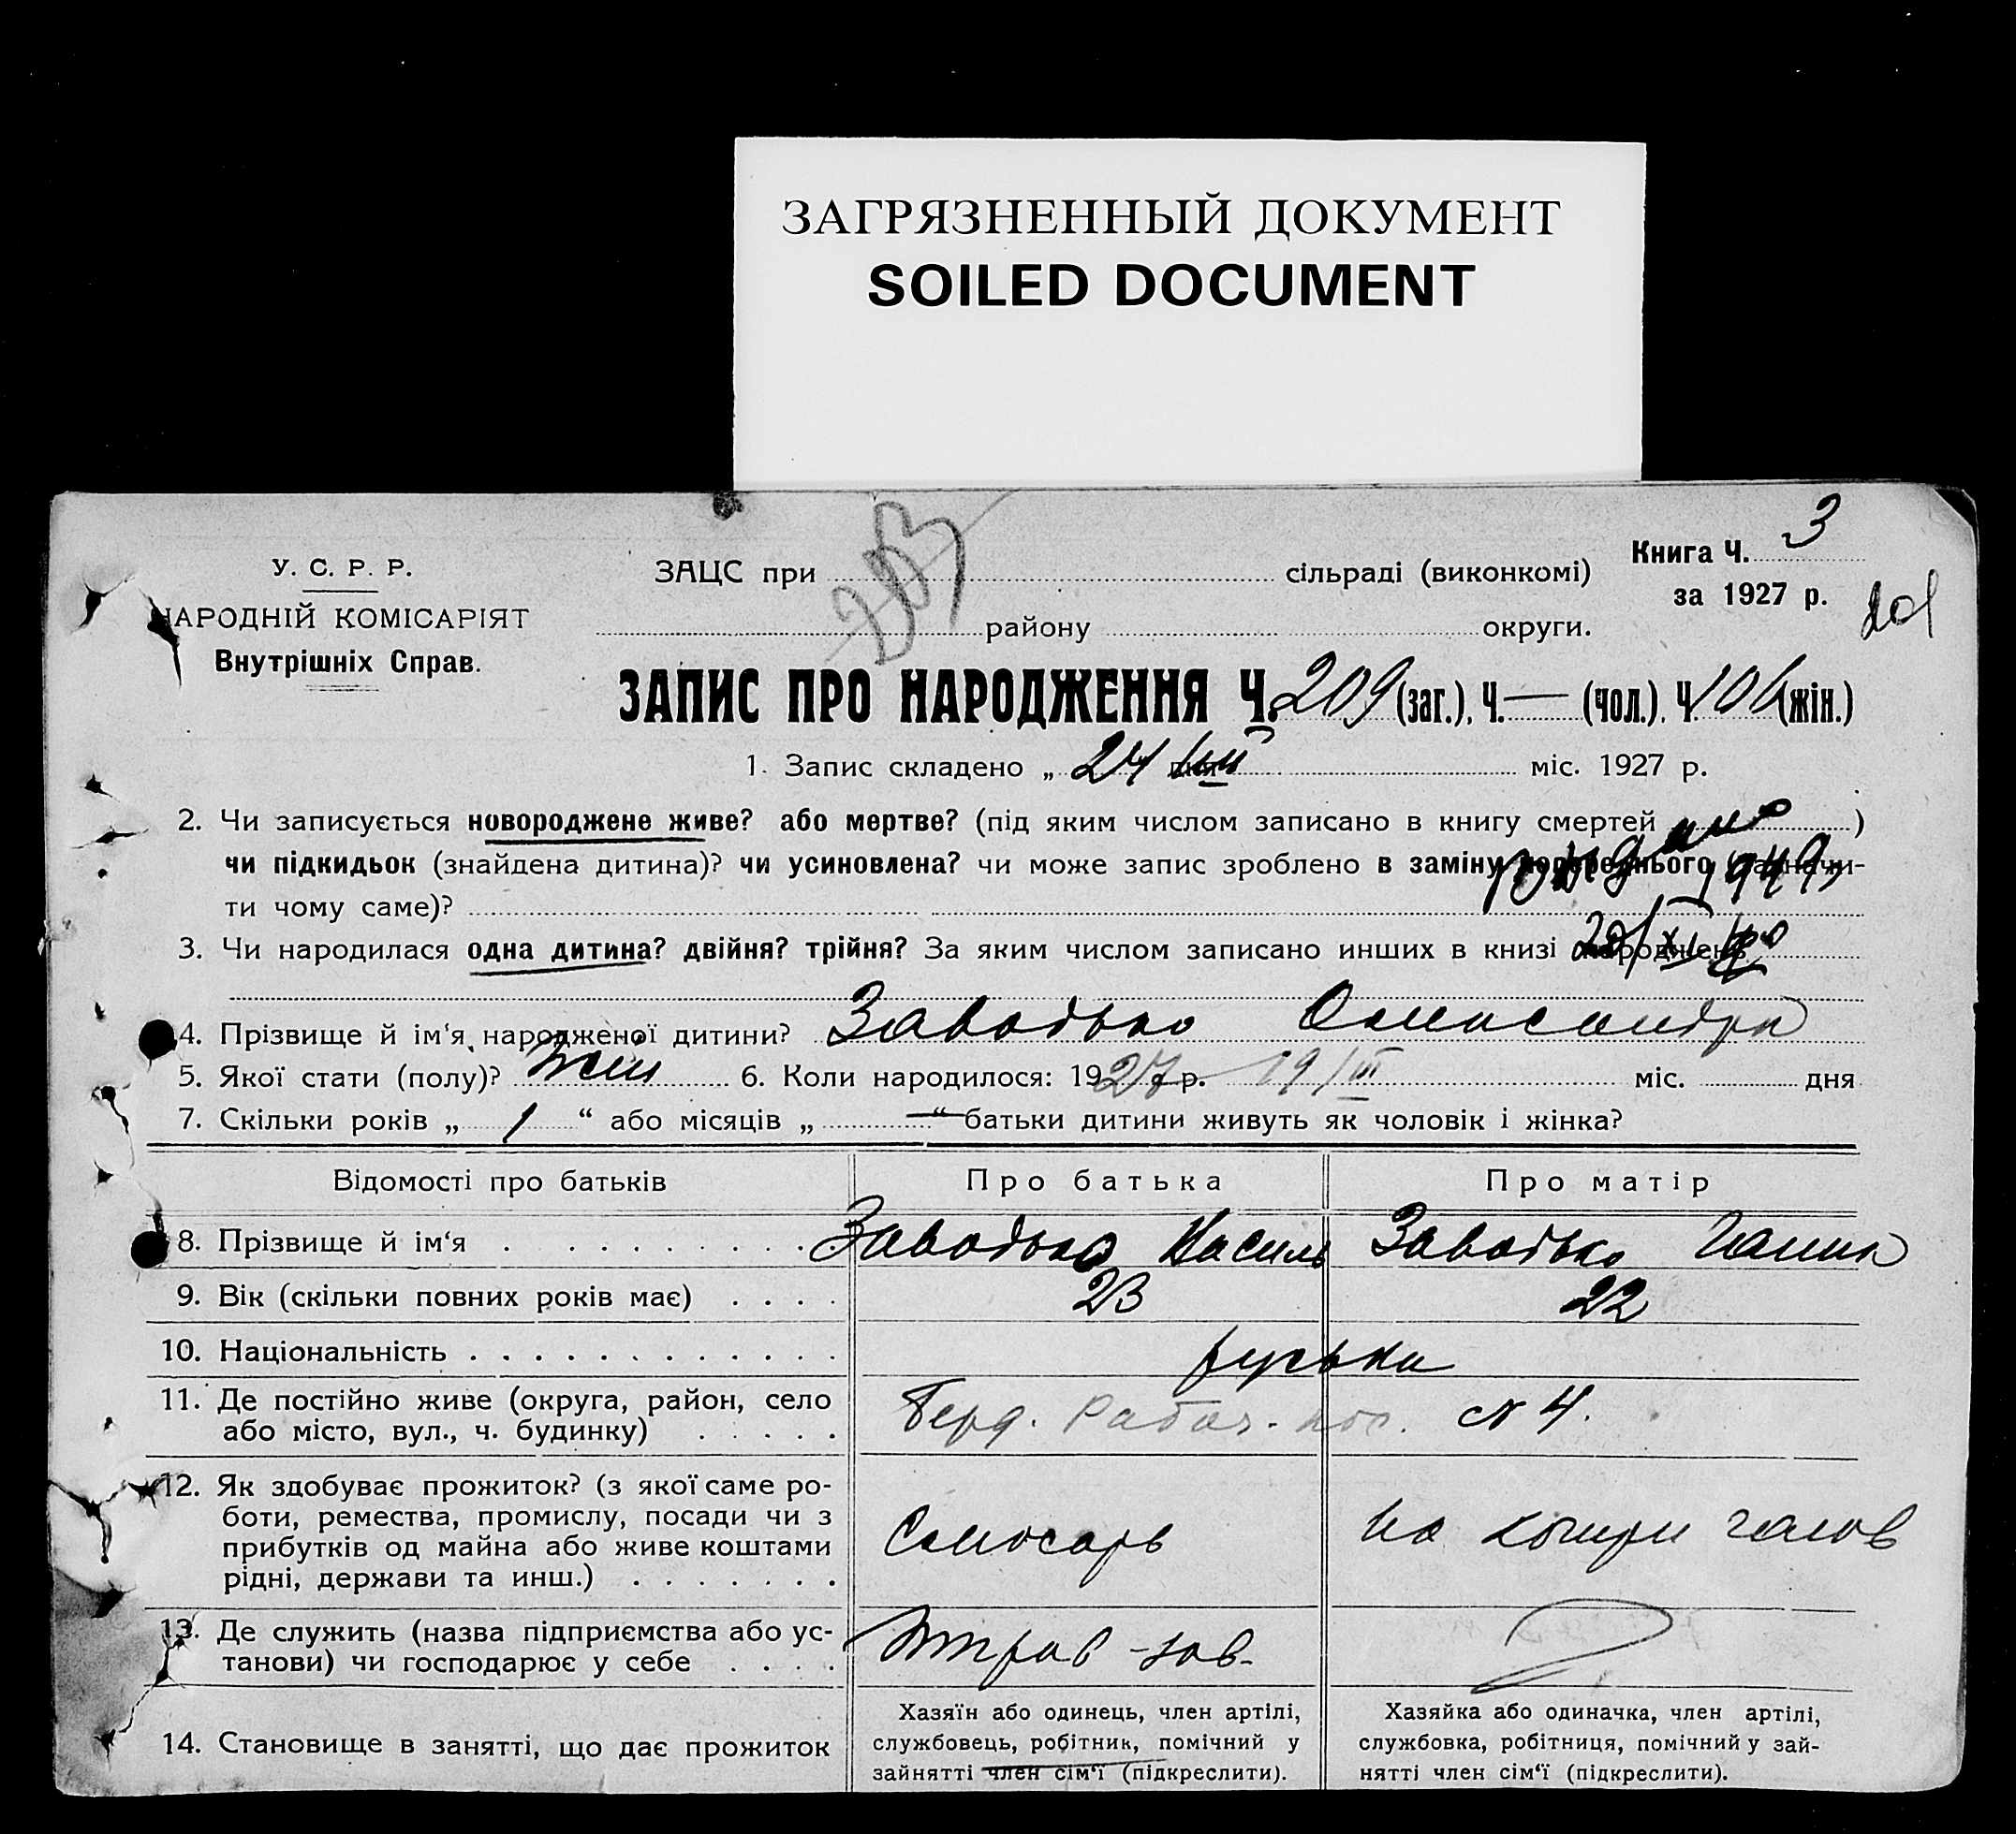 ЗАГРЯЗНЕННЫЙ ДОКУМЕНТ
SOILED DOCUMENT
У. С. Р. Р.
НАРОДНІЙ КОМІСАРІЯТ
Внутрішніх Справ.
ЗАЦС при сільраді (виконкомі)
району округи.
Книга Ч. 3
за 1927 р.
ЗАПИС ПРО НАРОДЖЕННЯ Ч. 209 (заг.), Ч. — (чол.), Ч. 106 (жін.)
1. Запис складено „ 24 міс. 1927 р.
2. Чи записується новороджене живе? або мертве? (під яким числом записано в книгу смертей )
чи підкидьок (знайдена дитина)? чи усиновлена? чи може запис зроблено в заміну попереднього (зазначи-
ти чому саме)?
1949
3. Чи народилася одна дитина? двійня? трійня? За яким числом записано инших в книзі народжень
4. Прізвище й ім'я народженої дитини? Заводько Олександра
5. Якої стати (полу)? жін 6. Коли народилося: 1927 р. 19/VI міс. дня
7. Скільки років „ 1 “ або місяців „ — “ батьки дитини живуть як чоловік і жінка?
Відомості про батьків Про батька Про матір
8. Прізвище й ім'я Заводько Василь Заводько Ганна
9. Вік (скільки повних років має) 23 22
10. Національність руська
11. Де постійно живе (округа, район, село
або місто, вул., ч. будинку)
Берд. Рабоч. пос. № 4.
12. Як здобуває прожиток? (з якої саме ро-
боти, ремества, промислу, посади чи з
прибутків од майна або живе коштами
рідні, держави та инш.)
Слюсарь
на кошти
13. Де служить (назва підприємства або ус-
танови) чи господарює у себе
зав.
14. Становище в занятті, що дає прожиток
Хазяїн або одинець, член артілі,
службовець, робітник, помічний у
зайнятті член сім'ї (підкреслити).
Хазяйка або одиначка, член артілі,
службовка, робітниця, помічний у зай-
нятті член сім'ї (підкреслити).